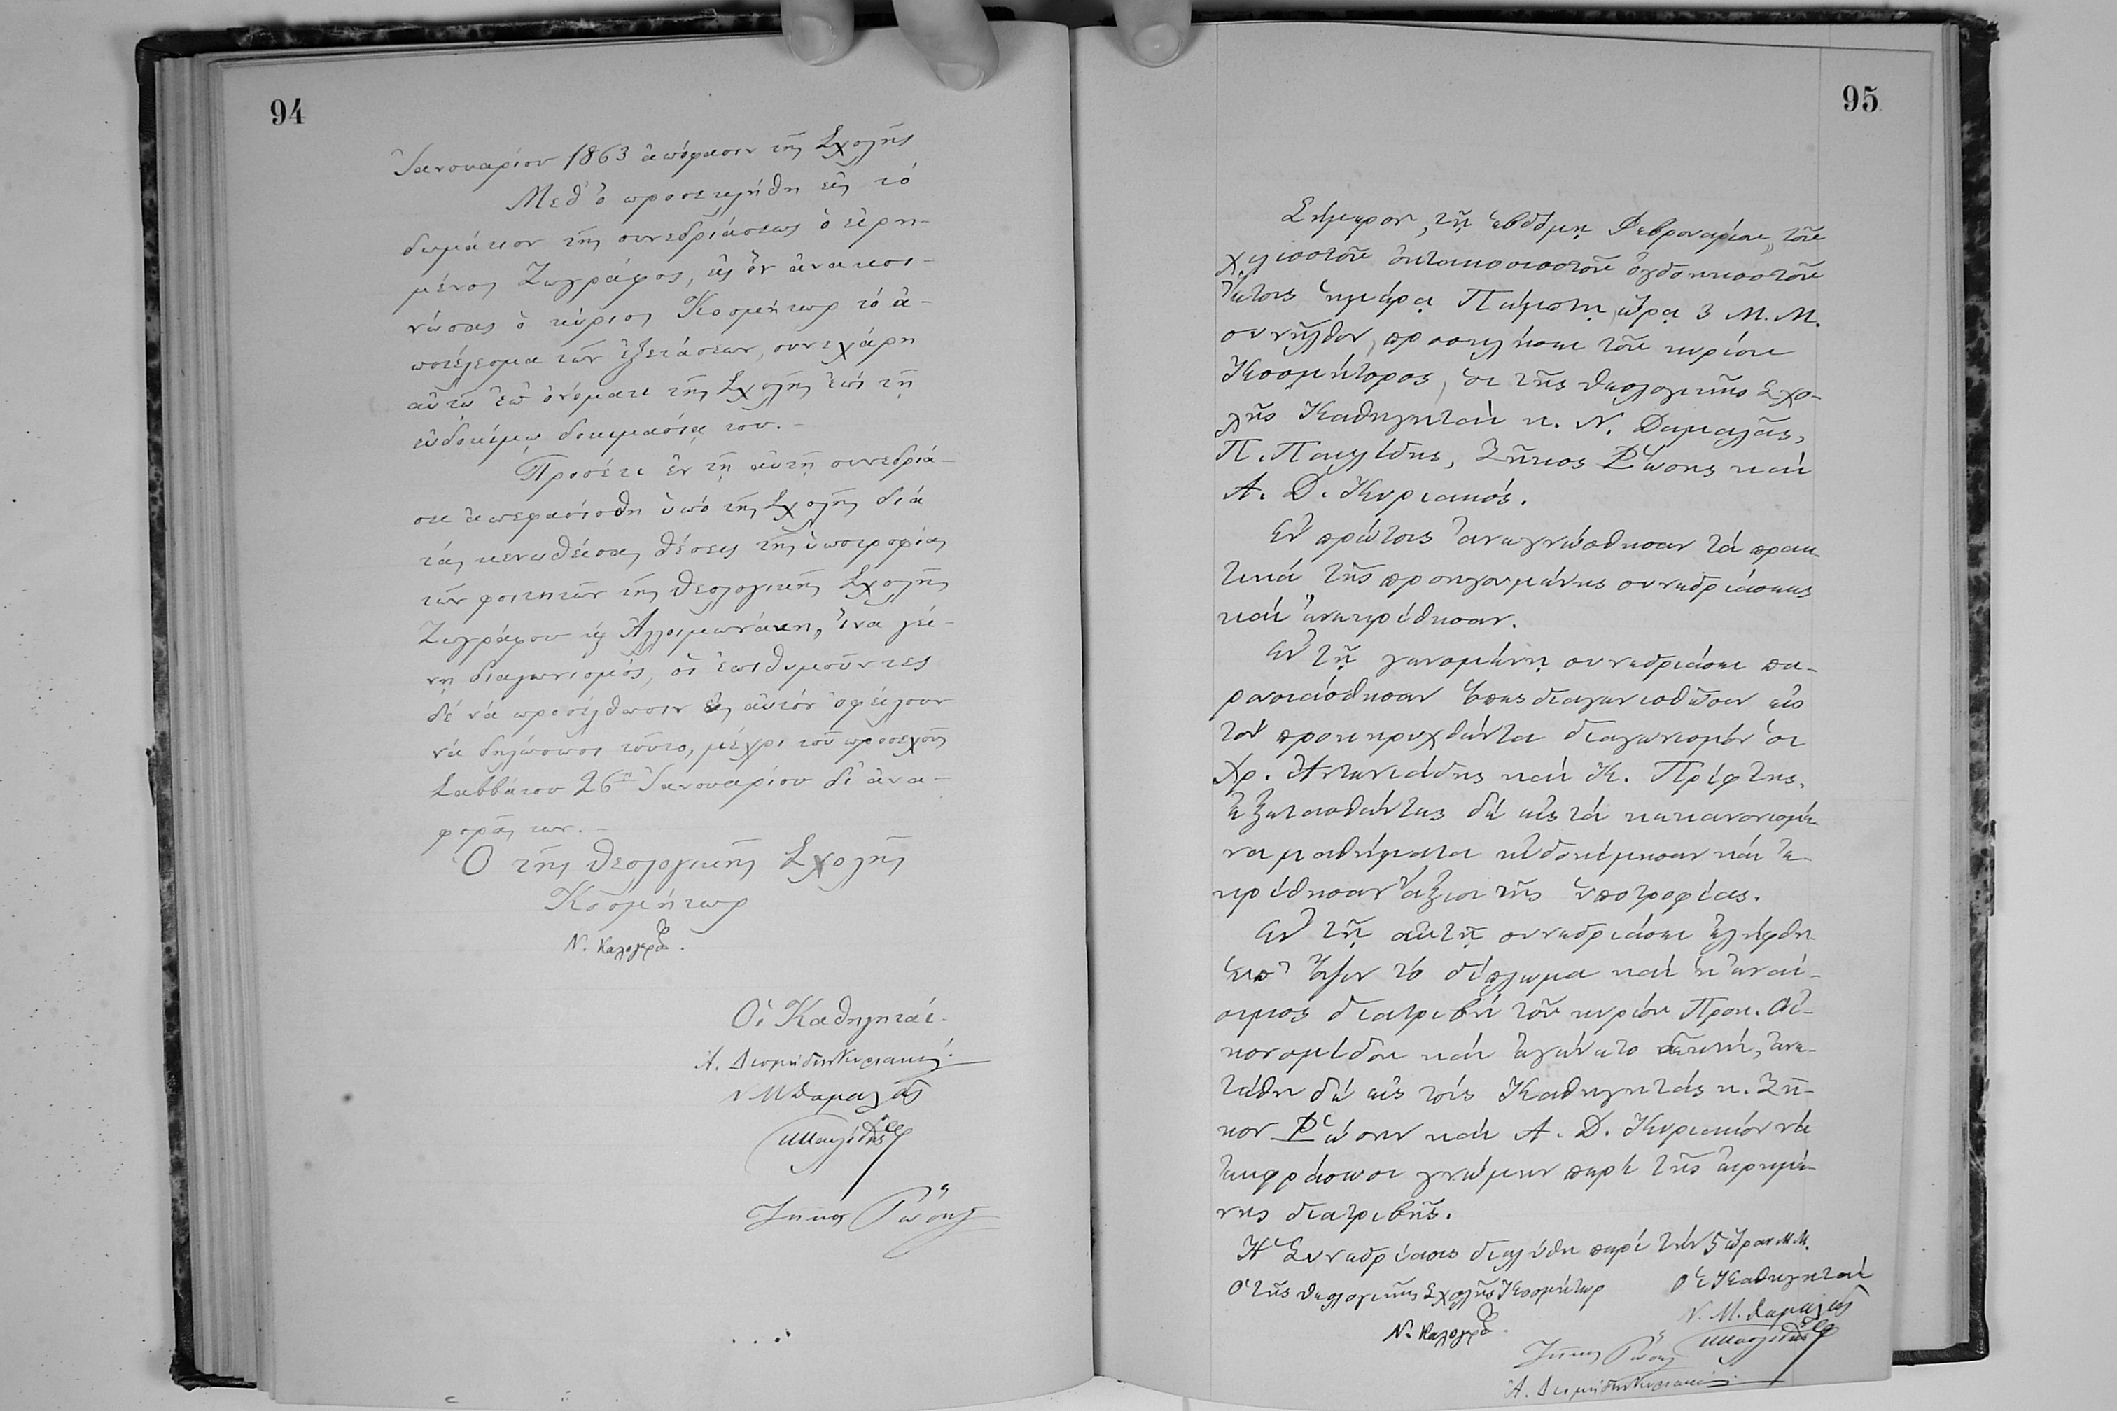 94
Ἰανουαρίου 1863 ἀπόφασιν τῆς Σχολῆς
Μεθ' ὃ προσεκλήθη εἰς τὸ
δωμάτιον τῆς συνεδριάσεως ὁ εἰρη-
μένος Ζωγράφος, εἰς ὃν ἀνακοι-
νώσας ὁ κύριος Κοσμήτωρ τὸ ἀ-
ποτέλεσμα τῶν ἐξετάσεων, συνεχάρη
αὐτῷ ἐπ' ὀνόματι τῆς Σχολῆς ἐπὶ τῇ
εὐδοκίμῳ δοκιμασίᾳ του. -
Προσέτι ἐν τῇ αὐτῇ συνεδριά-
σει ἀπεφασίσθη ὑπὸ τῆς Σχολῆς διὰ
τὰς κενωθείσας θέσεις τῆς ὑποτροφίας
τῶν φοιτητῶν τῆς Θεολογικῆς Σχολῆς
Ζωγράφου ἢ Ἀλλοιμωνάκη, ἵνα γεί-
νῃ διαγωνισμός, οἱ ἐπιθυμοῦντες
δὲ νὰ προσέλθωσιν εἰς αὐτὸν ὀφείλουν
νὰ δηλώσωσι τοῦτο, μέχρι τοῦ προσεχοῦς
Σαββάτου 26 Ἰανουαρίου δι' ἀνα-
φορᾶς των. -
Ὁ τῆς Θεολογικῆς Σχολῆς
Κοσμήτωρ
Ν. Καλογερᾶς.
Οἱ Καθηγηταί.
Ἀ. Διομήδης Κυριακός.
Ν. Μ. Δαμαλᾶς
Π. Παυλίδης
Ζῆκος Ῥώσης
95
Σήμερον, τῇ ἑβδόμῃ Φεβρουαρίου, τοῦ
χιλιοστοῦ ὀκτακοσιοστοῦ ὀγδοηκοστοῦ
ἔτους ἡμέρᾳ Πέμπτῃ, ὥρᾳ 3 Μ. Μ.
συνῆλθον, προσκλήσει τοῦ κυρίου
Κοσμήτορος, οἱ τῆς Θεολογικῆς Σχο-
λῆς Καθηγηταὶ κ. Ν. Δαμαλᾶς,
Π. Παυλίδης, Ζῆκος Ῥώσης καὶ
Α. Δ. Κυριακός.
Ἐν πρώτοις ἀνεγνώσθησαν τὰ πρακ-
τικὰ τῆς προηγουμένης συνεδριάσεως
καὶ ἐνεκρίθησαν.
Ἐν τῇ γενομένῃ συνεδριάσει πα-
ρουσιάσθησαν ὅπως διαγωνισθῶσιν εἰς
τὸν προκηρυχθέντα διαγωνισμὸν οἱ
Χρ. Ἀντωνιάδης καὶ Κ. Πρίφτης.
Ἐξετασθέντες δὲ εἰς τὰ κεκανονισμέ-
να μαθήματα εὐδοκίμησαν καὶ ἐ-
κρίθησαν ἄξιοι τῆς ὑποτροφίας.
Ἐν τῇ αὐτῇ συνεδριάσει ἐλήφθη
ὑπ' ὄψιν τὸ δίπλωμα καὶ ἡ ἐναί-
σιμος διατριβὴ τοῦ κυρίου Προκ. Οἰ-
κονομίδου καὶ ἐγένετο δεκτή, ἀνε-
τέθη δὲ εἰς τοὺς Καθηγητὰς κ. Ζῆ-
κον Ῥώσην καὶ Α. Δ. Κυριακὸν νὰ
ἐκφράσωσι γνώμην περὶ τῆς εἰρημέ-
νης διατριβῆς.
Ἡ Συνεδρίασις διελύθη περὶ τὴν 5 ὥραν Μ.Μ.
Ὁ τῆς Θεολογικῆς Σχολῆς Κοσμήτωρ
Οἱ Καθηγηταί
Ν. Καλογερᾶς.
Ν. Μ. Δαμαλᾶς
Π. Παυλίδης
Ζῆκος Ῥώσης
Ἀ. Διομήδης Κυριακός